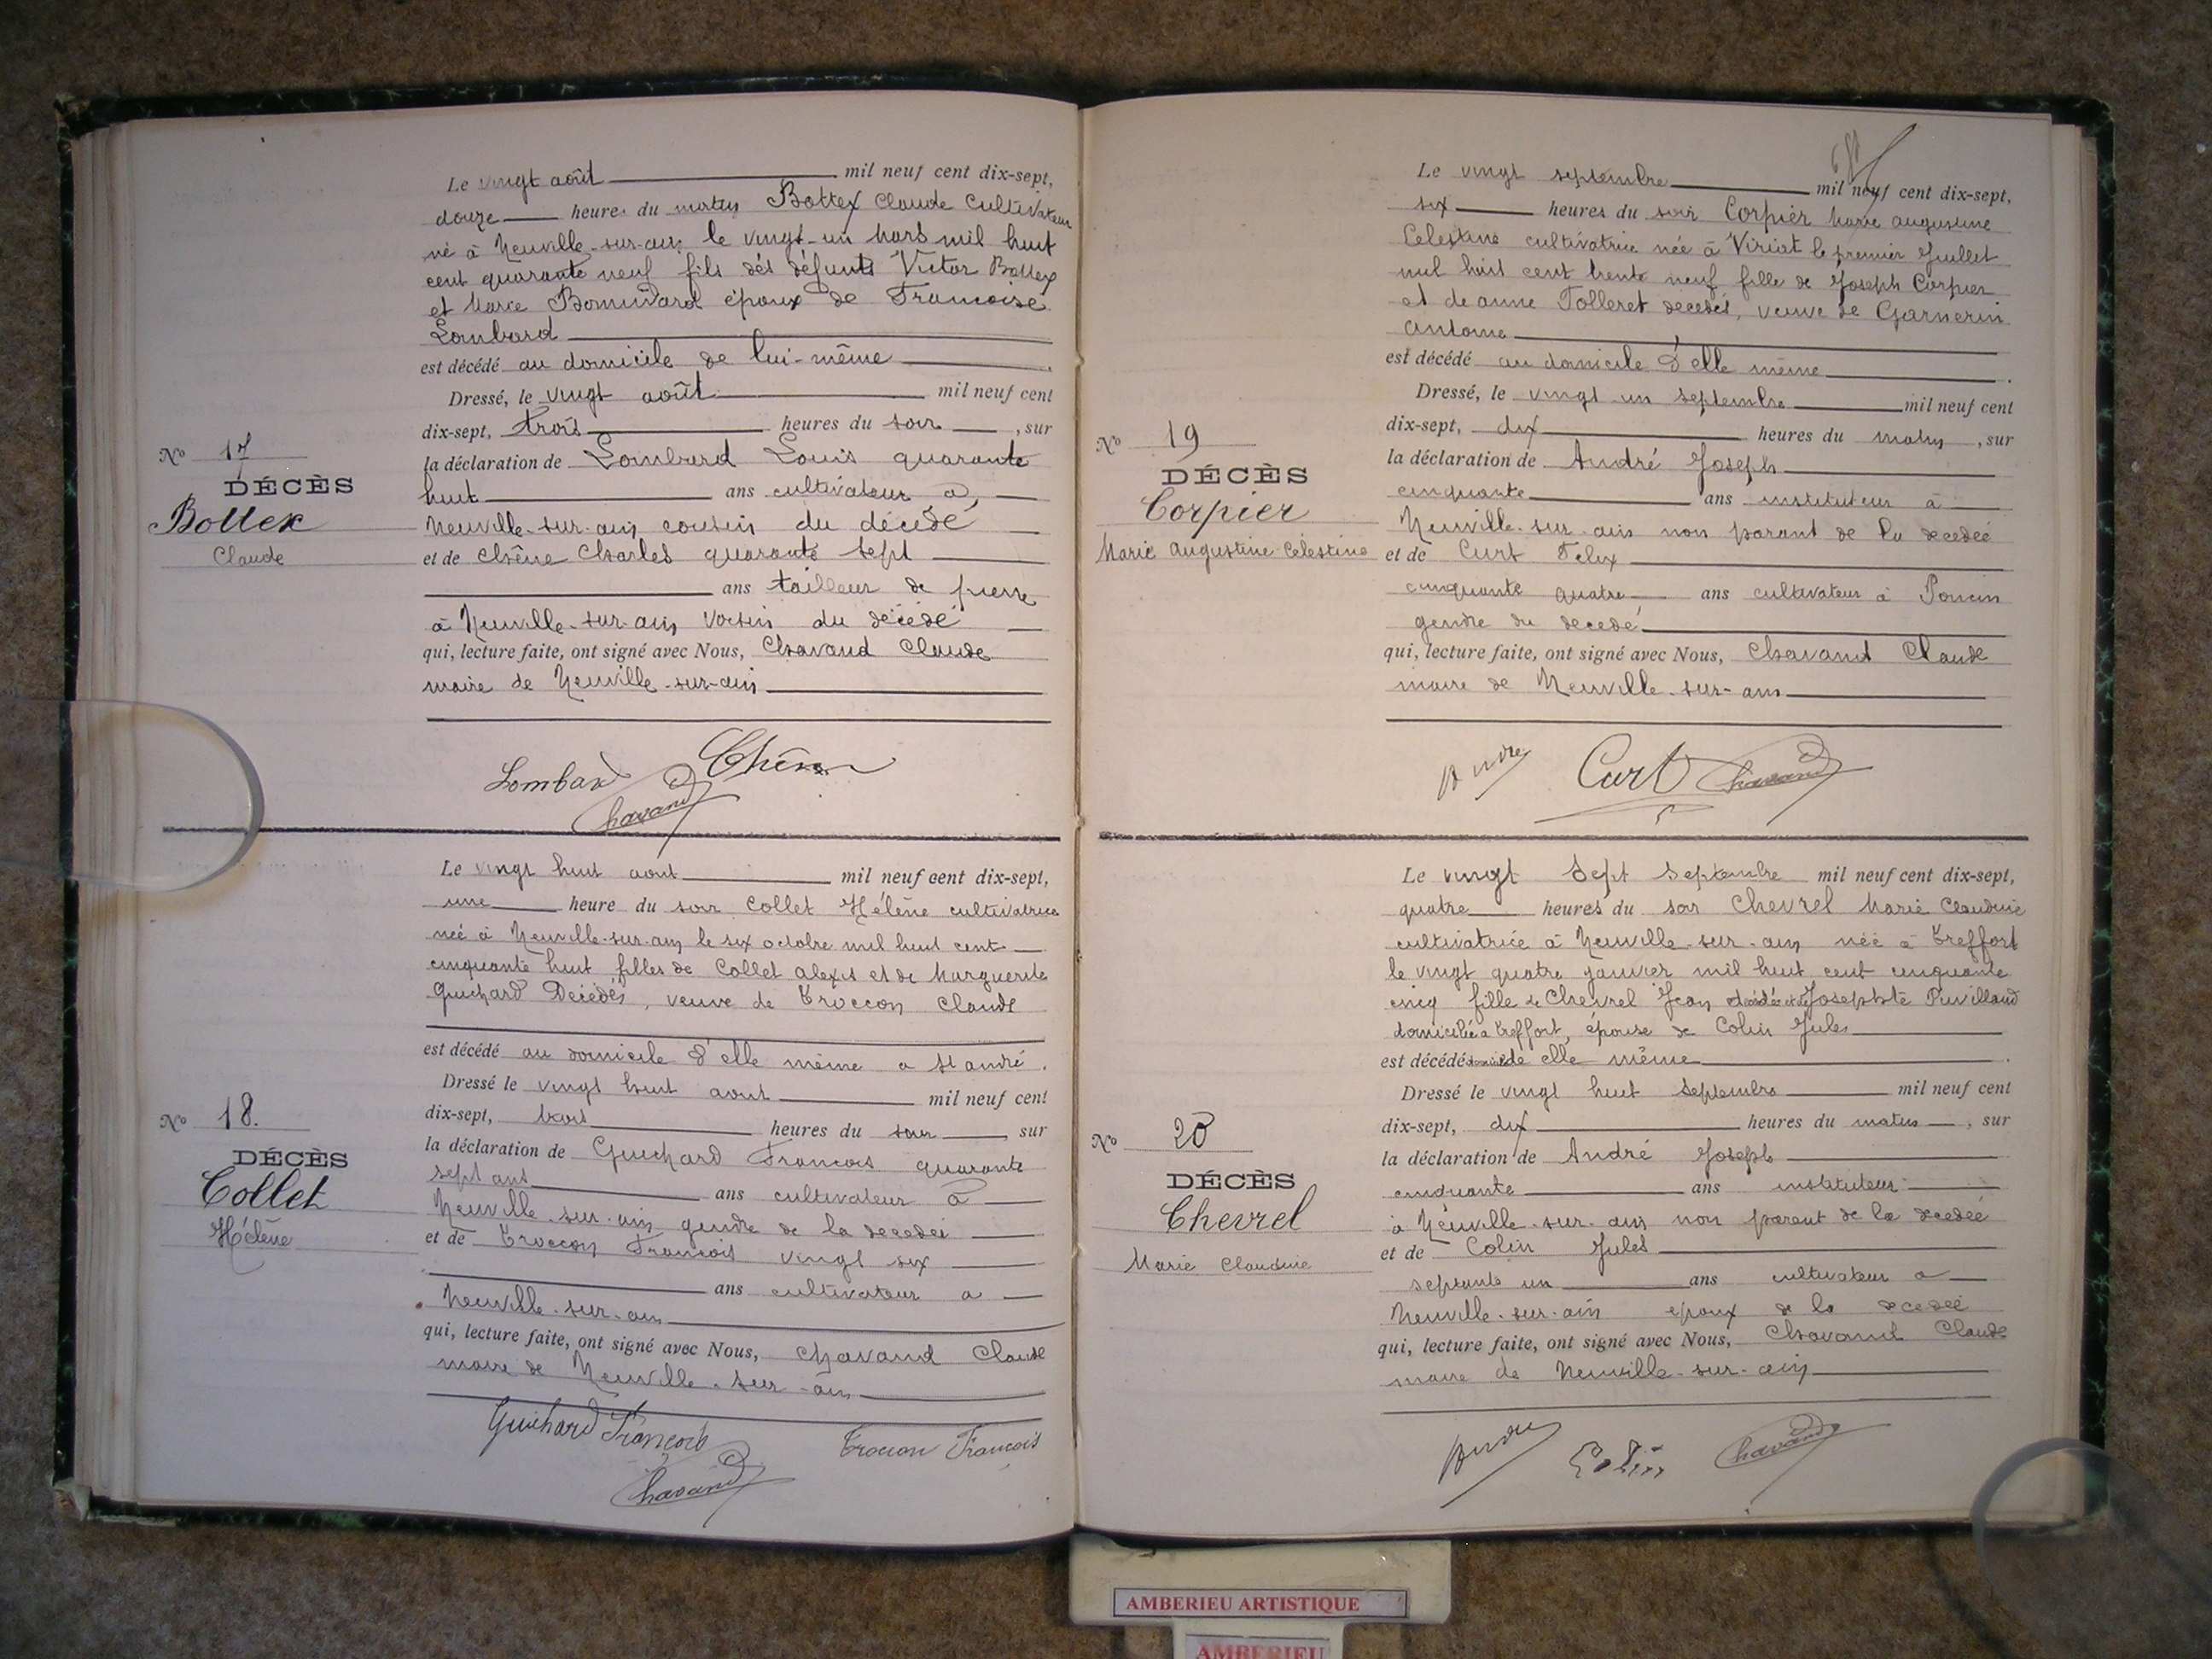 Le vingt août mil neuf cent dix-sept,
douze heures du matin Bottex Claude cultivateur
né à Neuville-sur-ain le vingt-un Mars mil huit
cent quarante neuf fils des défunts Victor Bottex
et Marie Bonnivard époux de Francoise
Lombard
est décédé au domicile de lui-même
Dressé, le vingt août mil neuf cent
dix-sept, trois heures du soir, sur
la déclaration de Lombard Louis quarante
huit ans cultivateur à
Neuville-sur-ain cousin du décédé
et de Chêne Charles quarante sept
ans tailleur de pierre
à Neuville-sur-ain voisin du décédé
qui, lecture faite, ont signé avec Nous, Chavand Claude
maire de Neuville-sur-ain
No 17
DÉCÈS
Bottex
Claude
Lombard Chêne
Chavand
Le vingt huit aout mil neuf cent dix-sept,
une heure du soir Collet Hélène cultivatrice
née à Neuville-sur-ain le six octobre mil huit cent
cinquante huit filles de Collet Alexis et de Marguerite
Guichard Décédés, veuve de Troccon Claude
est décédé au domicile d'elle même a St andré.
Dressé le vingt huit aout mil neuf cent
dix-sept, trois heures du soir, sur
la déclaration de Guichard Francois quarante
sept ans ans cultivateur à
Neuville-sur-ain gendre de la decedeé
et de Troccon Francois vingt six
ans cultivateur a
Neuville-sur-ain
qui, lecture faite, ont signé avec Nous, Chavand Claude
maire de Neuville-sur-ain
No 18.
DÉCÈS
Collet
Hélène
Guichard François Troccon François
Chavand
Le vingt septembre mil neuf cent dix-sept,
six heures du soir Corpier Marie augustine
Celestine cultivatrice née à Viriat le premier Juillet
mil huit cent trente neuf fille de Joseph Corpier
et de anne Tolleret decedés, veuve de Garnerin
Antoine
est décédé au domicile d'elle même
Dressé, le vingt un septembre mil neuf cent
dix-sept, dix heures du matin, sur
la déclaration de André Joseph
cinquante ans instituteur à
Neuville-sur-ain non parant de la decedeé
et de Curt Felix
cinquante quatre ans cultivateur à Poncin
gendre du decedé
qui, lecture faite, ont signé avec Nous, Chavand Claude
maire de Neuville-sur-ain
No 19
DÉCÈS
Corpier
Marie Augustine Célestine
André Curt Chavand
Le vingt sept septembre mil neuf cent dix-sept,
quatre heures du soir Chevrel Marie Claudine
cultivatrice à Neuville-sur-ain née à Treffort
le vingt quatre janvier mil huit cent cinquante
cinq fille de Chevrel Jean Josephte Puvilland
domiciliée a Treffort, épouse de Colin Jules
est décédé domicile de elle même
Dressé le vingt huit septembre mil neuf cent
dix-sept, dix heures du matin, sur
la déclaration de André Joseph
cinquante ans instituteur
à Neuville-sur-ain non parent de la decedeé
et de Colin Jules
septante un ans cultivateur a
Neuville-sur-ain epoux de la decedeé
qui, lecture faite, ont signé avec Nous, Chavand Claude
maire de Neuville-sur-ain
No 20
DÉCÈS
Chevrel
Marie Claudine
André Colin Chavand
AMBERIEU ARTISTIQUE
AMBERIEU